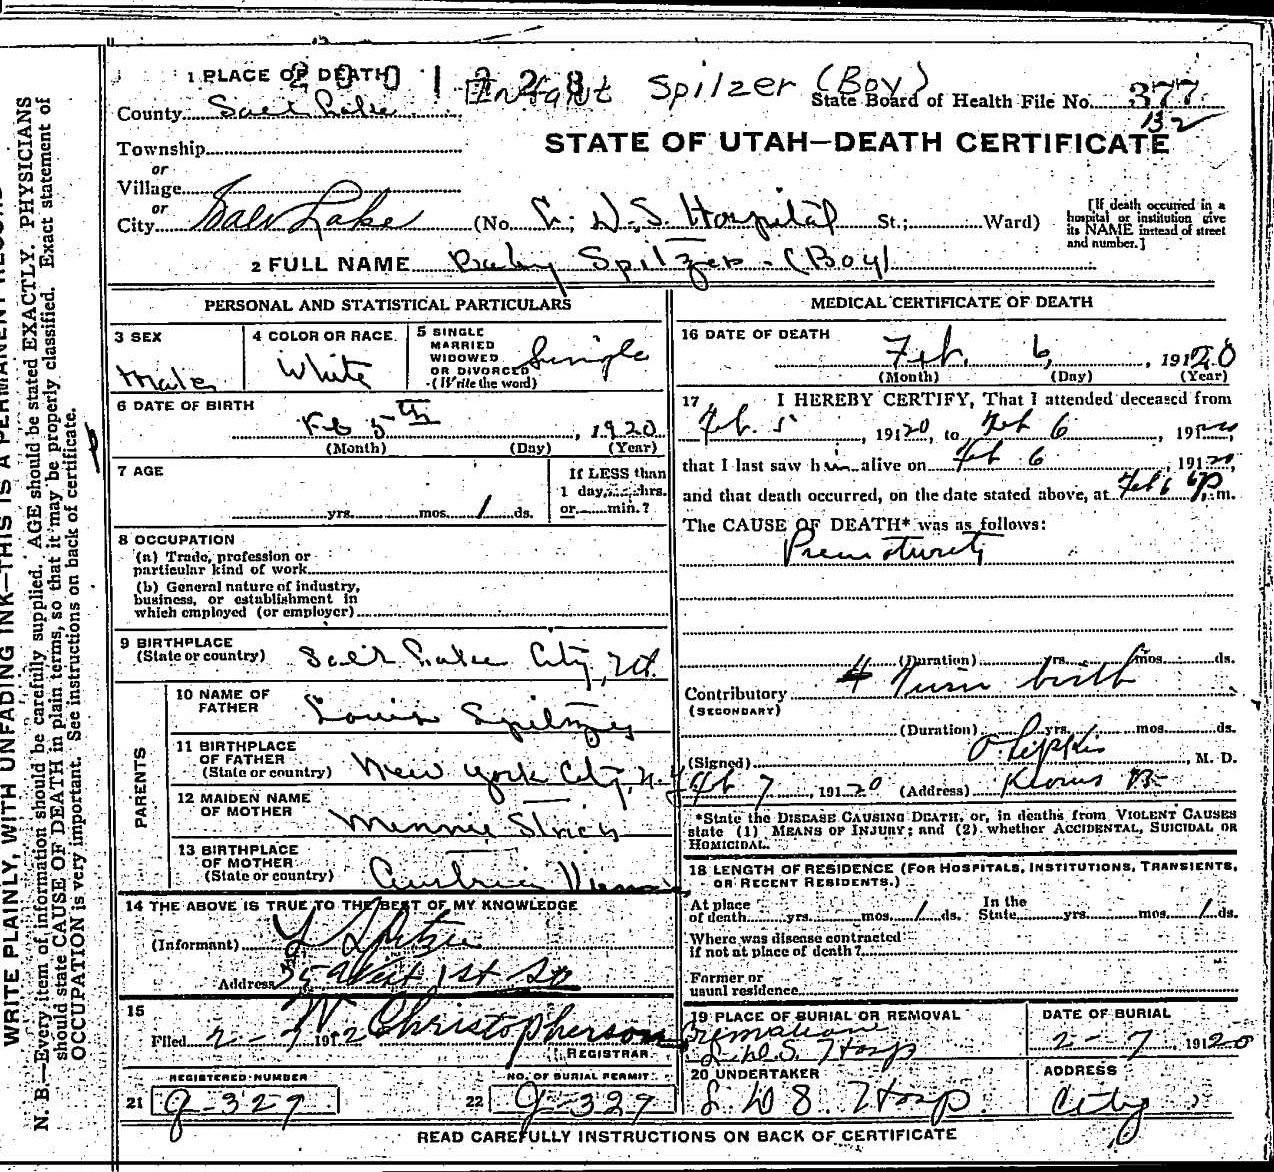 1 PLACE OF DEATH 2001228 Infant Spilzer (Boy)
County Salt Lake State Board of Health File No. 377
132
STATE OF UTAH—DEATH CERTIFICATE
Township
or
Village
or
City Salt Lake (No. L. D. S. Hospital St.; Ward)
[If death occurred in a hospital or institution give its NAME instead of street and number.]
2 FULL NAME Baby Spitzer - (Boy)
PERSONAL AND STATISTICAL PARTICULARS
3 SEX Male
4 COLOR OR RACE White
5 SINGLE MARRIED WIDOWED OR DIVORCED (Write the word) Single
6 DATE OF BIRTH
Feb 5th, 1920
(Month) (Day) (Year)
7 AGE
yrs. mos. 1 ds.
If LESS than
1 day, hrs.
or min.?
8 OCCUPATION
(a) Trade, profession or
particular kind of work
(b) General nature of industry,
business, or establishment in
which employed (or employer)
9 BIRTHPLACE
(State or country) Salt Lake City, Ut.
PARENTS
10 NAME OF
FATHER Louis Spitzer
11 BIRTHPLACE
OF FATHER
(State or country) New York City, N.Y.
12 MAIDEN NAME
OF MOTHER Minnie
13 BIRTHPLACE
OF MOTHER
(State or country) Austria Vienna
14 THE ABOVE IS TRUE TO THE BEST OF MY KNOWLEDGE
(Informant) L Spitzer
Address West 1st So
15
Filed 2-7 1912 W Christopherson
REGISTRAR
REGISTERED NUMBER
21 J-327
NO. OF BURIAL PERMIT
22 J-327
MEDICAL CERTIFICATE OF DEATH
16 DATE OF DEATH
Feb. 6, 1920
(Month) (Day) (Year)
17 I HEREBY CERTIFY, That I attended deceased from
Feb. 5, 19120, to Feb 6, 191
that I last saw him alive on Feb 6 19120,
and that death occurred, on the date stated above, at Feb 6 6 P. m.
The CAUSE OF DEATH* was as follows:
Prematurity
(Duration) yrs. mos. ds.
Contributory Twin birth
(SECONDARY)
(Duration) yrs. mos. ds.
(Signed) , M. D.
Feb 7, 19120 (Address) Kearns B
*State the DISEASE CAUSING DEATH, or, in deaths from VIOLENT CAUSES
state (1) MEANS OF INJURY; and (2) whether ACCIDENTAL, SUICIDAL OR
HOMICIDAL.
18 LENGTH OF RESIDENCE (FOR HOSPITALS, INSTITUTIONS, TRANSIENTS,
OR RECENT RESIDENTS.)
At place
of death yrs. mos. 1 ds. In the State yrs. mos. 1 ds.
Where was disease contracted
if not at place of death?
Former or
usual residence
19 PLACE OF BURIAL OR REMOVAL
Cremation
L. D. S. Hosp
DATE OF BURIAL
2-7, 19120
20 UNDERTAKER
L. D. S. Hosp.
ADDRESS
City
READ CAREFULLY INSTRUCTIONS ON BACK OF CERTIFICATE
WRITE PLAINLY, WITH UNFADING INK—THIS IS A PERMANENT RECORD
N. B.—Every item of information should be carefully supplied. AGE should be stated EXACTLY. PHYSICIANS
should state CAUSE OF DEATH in plain terms, so that it may be properly classified. Exact statement of
OCCUPATION is very important. See instructions on back of certificate.